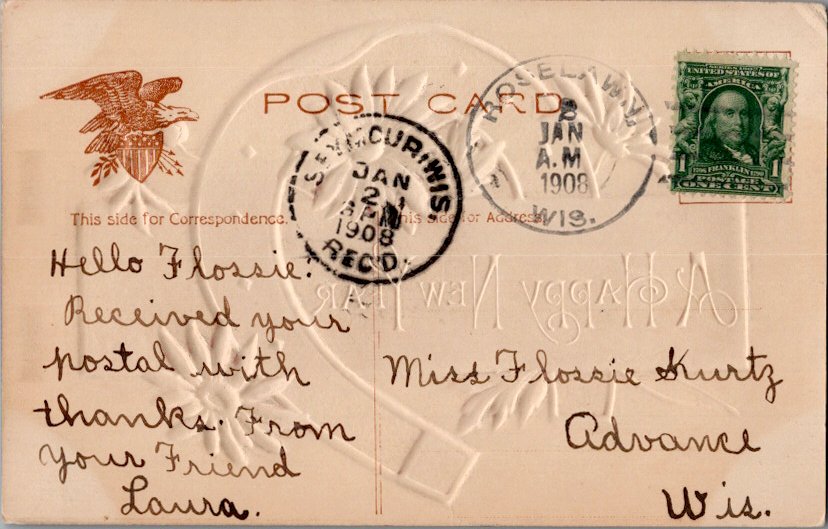 POST CARD
ROSELAWN
8
JAN
A.M
1908
WIS.
SERIES 1902
UNITED STATES OF
AMERICA
1706 FRANKLIN 1790
POSTAGE
1 1
ONE CENT
SEYMOUR, WIS.
JAN
2
1908
REC'D.
This side for Correspondence.
This side for Address.
A HAPPY NEW YEAR
Hello Flossie.
Received your
postal with
thanks. From
your Friend
Laura.
Miss Flossie Kurtz
Advance
Wis.